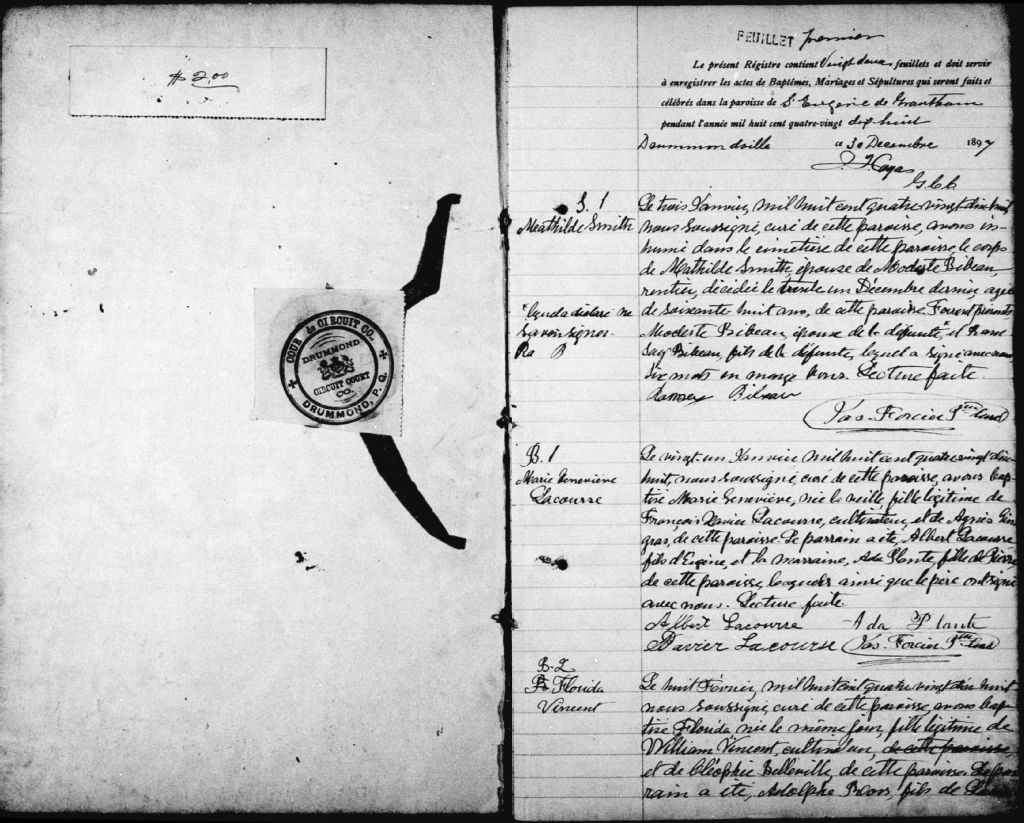 $2.00
COUR de CIRCUIT CO.
DRUMMOND
CIRCUIT COURT
CO.
DRUMMOND, P. Q.
FEUILLET premier
Le présent Régistre contient Vingt deux feuillets et doit servir
à enregistrer les actes de Baptêmes, Mariages et Sépultures qui seront faits et
célébrés dans la paroisse de St Eugène de Grantham
pendant l'année mil huit cent quatre-vingt dix huit
Drummondville ce 30 Decembre 1897
S. 1
Mathilde Smith
Le trois Janvier, mil huit cent quatre vingt dix huit
nous soussigné, curé de cette paroisse, avons in-
humé dans le cimetière de cette paroisse, le corps
de Mathilde Smith, épouse de Modeste Bibeau,
rentier, décédée le trente un Décembre dernier, agée
de soixante huit ans, de cette paroisse. Furent présents
Modeste Bibeau, époux de la défunte, et
Bibeau, fils de la défunte, lequel a signé avec nous
Six mots en marge bons. Lecture faite.
déclaré ne
savoir signer
Bibeau
Jas. Forcier Ptre Curé
B. 1
Marie Geneviève
Lacourse
Le vingt un Janvier mil huit cent quatre vingt dix
huit, nous soussigné curé de cette paroisse, avons bap-
tisé Marie Geneviève, née la veille fille légitime de
François Xavier Lacourse, cultivateur, et de Agnès Gin
gras, de cette paroisse Le parrain a été, Albert Lacourse
fils d'Eugène, et la marraine, Ada Plante, fille de Pierre
de cette paroisse, lesquels ainsi que le père ont signé
avec nous. Lecture faite.
Albert Lacourse Ada Plante
Xavier Lacourse Jas. Forcier Ptre Curé
B-2
Florida
Vincent
Le huit Février, mil huit cent quatre vingt dix huit
nous soussigné, curé de cette paroisse, avons bap-
tisé Florida née le même jour, fille légitime de
William Vincent, cultivateur, de cette paroisse
et de Cléophie Belleville, de cette paroisse. Le par
rain a été, Adolphe fils de